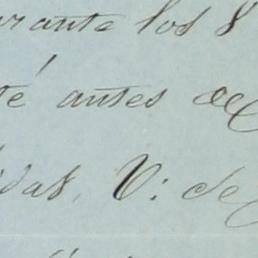 urante los 8
té antes de
idas, V: de